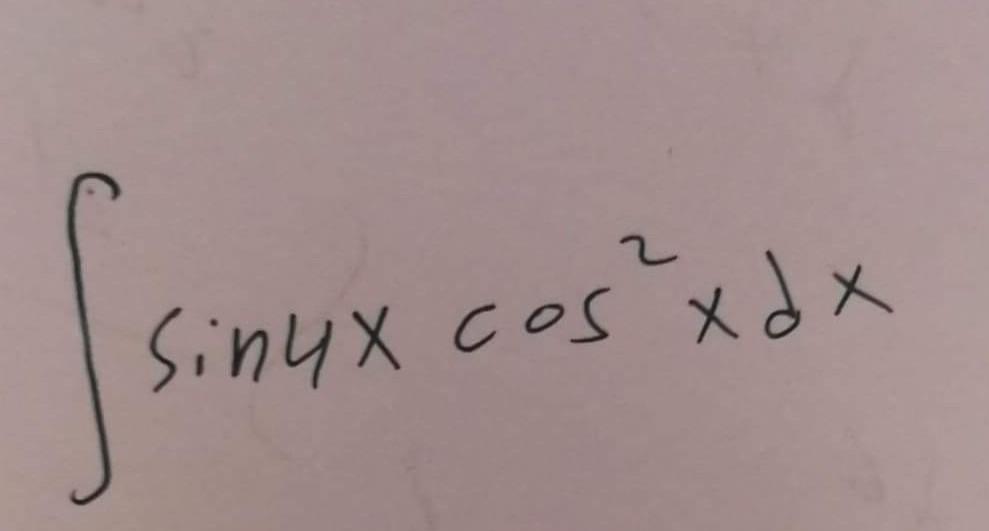 ∫ sin4x cos²x dx